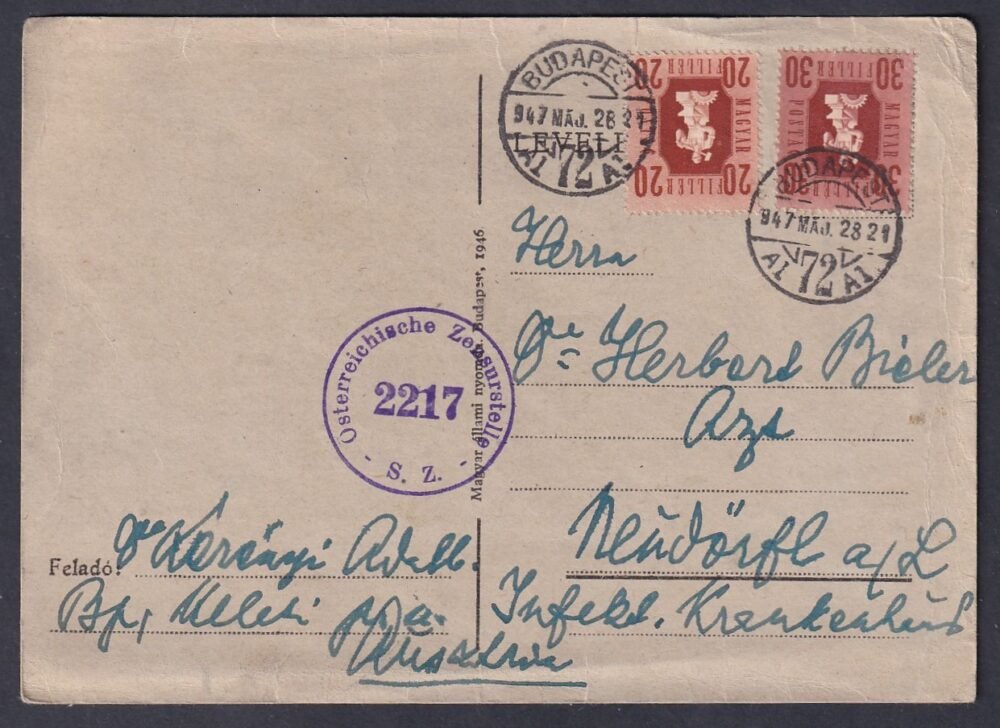 BUDAPEST
947 MÁJ. 28 21
A1 72 A1
LEVELE
20 FILLÉR 20
MAGYAR
20 FILLÉR 20
30 FILLÉR 30
MAGYAR POSTA
30 FILLÉR 30
BUDAPEST
947 MÁJ. 28 21
A1 72 A1
Herrn
Herbert Bieler
Neudörfl a/L
Infekt. Krankenhaus
Austria
Österreichische Zensurstelle
2217
- S. Z. -
Magyar állami nyomda, Budapest, 1946.
Feladó:
Bp, Keleti